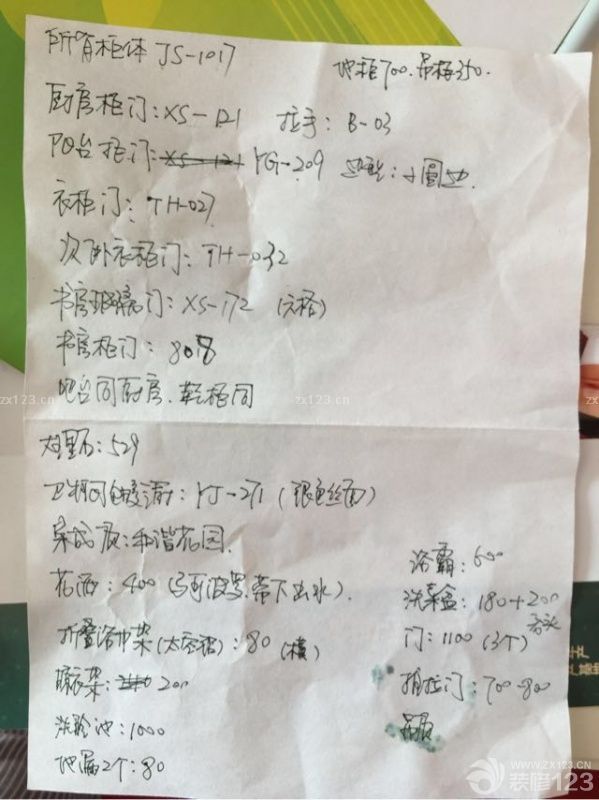 所有柜体 JS-1017
地柜700. 吊柜350.
厨房柜门: XS-121 拉手: B-03
阳台柜门: XS-121 YG-209 边型: 小圆边.
衣柜门: TH-027
次卧衣柜门: TH-032
书房玻璃门: XS-172 (六格)
书房柜门: 8018
吧台同厨房. 鞋柜同
大理石: 529
卫生间: YJ-271 (银色丝面)
集成顶: 和谐花园.
花洒: 400 (马可波罗, 带下出水).
折叠浴巾架(太空铝): 80 (横)
晾衣架: 200
洗脸池: 1000
地漏2个: 80
浴霸: 600
洗菜盆: 180+200
龙头
门: 1100 (3个)
推拉门: 700-800
吊顶
zx123.cn
zx123.cn
WWW.ZX123.CN
装修123